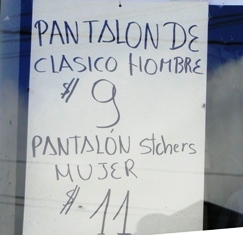 PANTALON DE
CLASICO HOMBRE
$ 9
PANTALÓN stchers
MUJER
$. 11